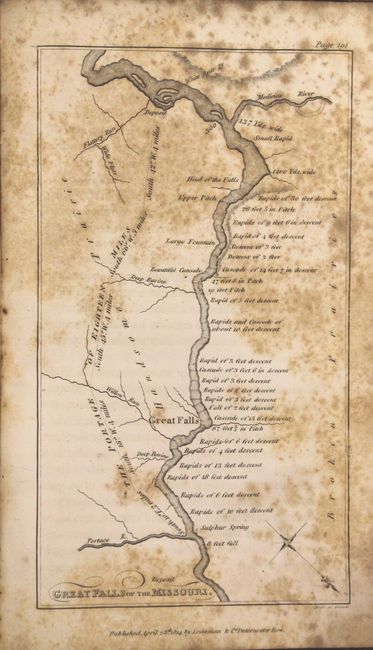 Page 101
White Bear Is.
Medicine River
137 Yds. wide
Small Rapid
300
Deposit
Flattery Run
1400 Yds. wide
Head of the Falls
Rapids of 30 feet descent
Upper Pitch
26 feet 5 in Pitch
Rapids of 9 feet 6 in descent
Rapid of 4 feet descent
Large Fountain
Descent of 3 feet
Descent of 2 feet
Cascade of 14 feet 7 in descent
Beautiful Cascade
47 feet 8 in Pitch
Deep Ravine
19 feet Pitch
Rapid of 5 feet descent
Rapids and Cascade of
about 10 feet descent
Rapid of 3 feet descent
Cascade of 3 feet 6 in descent
Rapid of 3 feet descent
Rapids of 6 feet descent
Rapid of 3 feet descent
Fall of 2 feet descent
Willow Run
Great Falls
Cascade of 13 feet descent
87 feet ¾ in Pitch
Rapids of 6 feet descent
Rapids of 4 feet descent
Deep Ravine
Rapids of 13 feet descent
Rapids of 18 feet descent
Rapids of 6 feet descent
Rapids of 10 feet descent
Sulphur Spring
Portage R.
8 feet fall
Deposit
THE PORTAGE OF EIGHTEEN MILES
South 42° W. 4 miles
Handsome Prairie
Broken Prairies
GREAT FALLS OF THE MISSOURI.
Published April 28th. 1814 by Longman & Co. Paternoster Row.